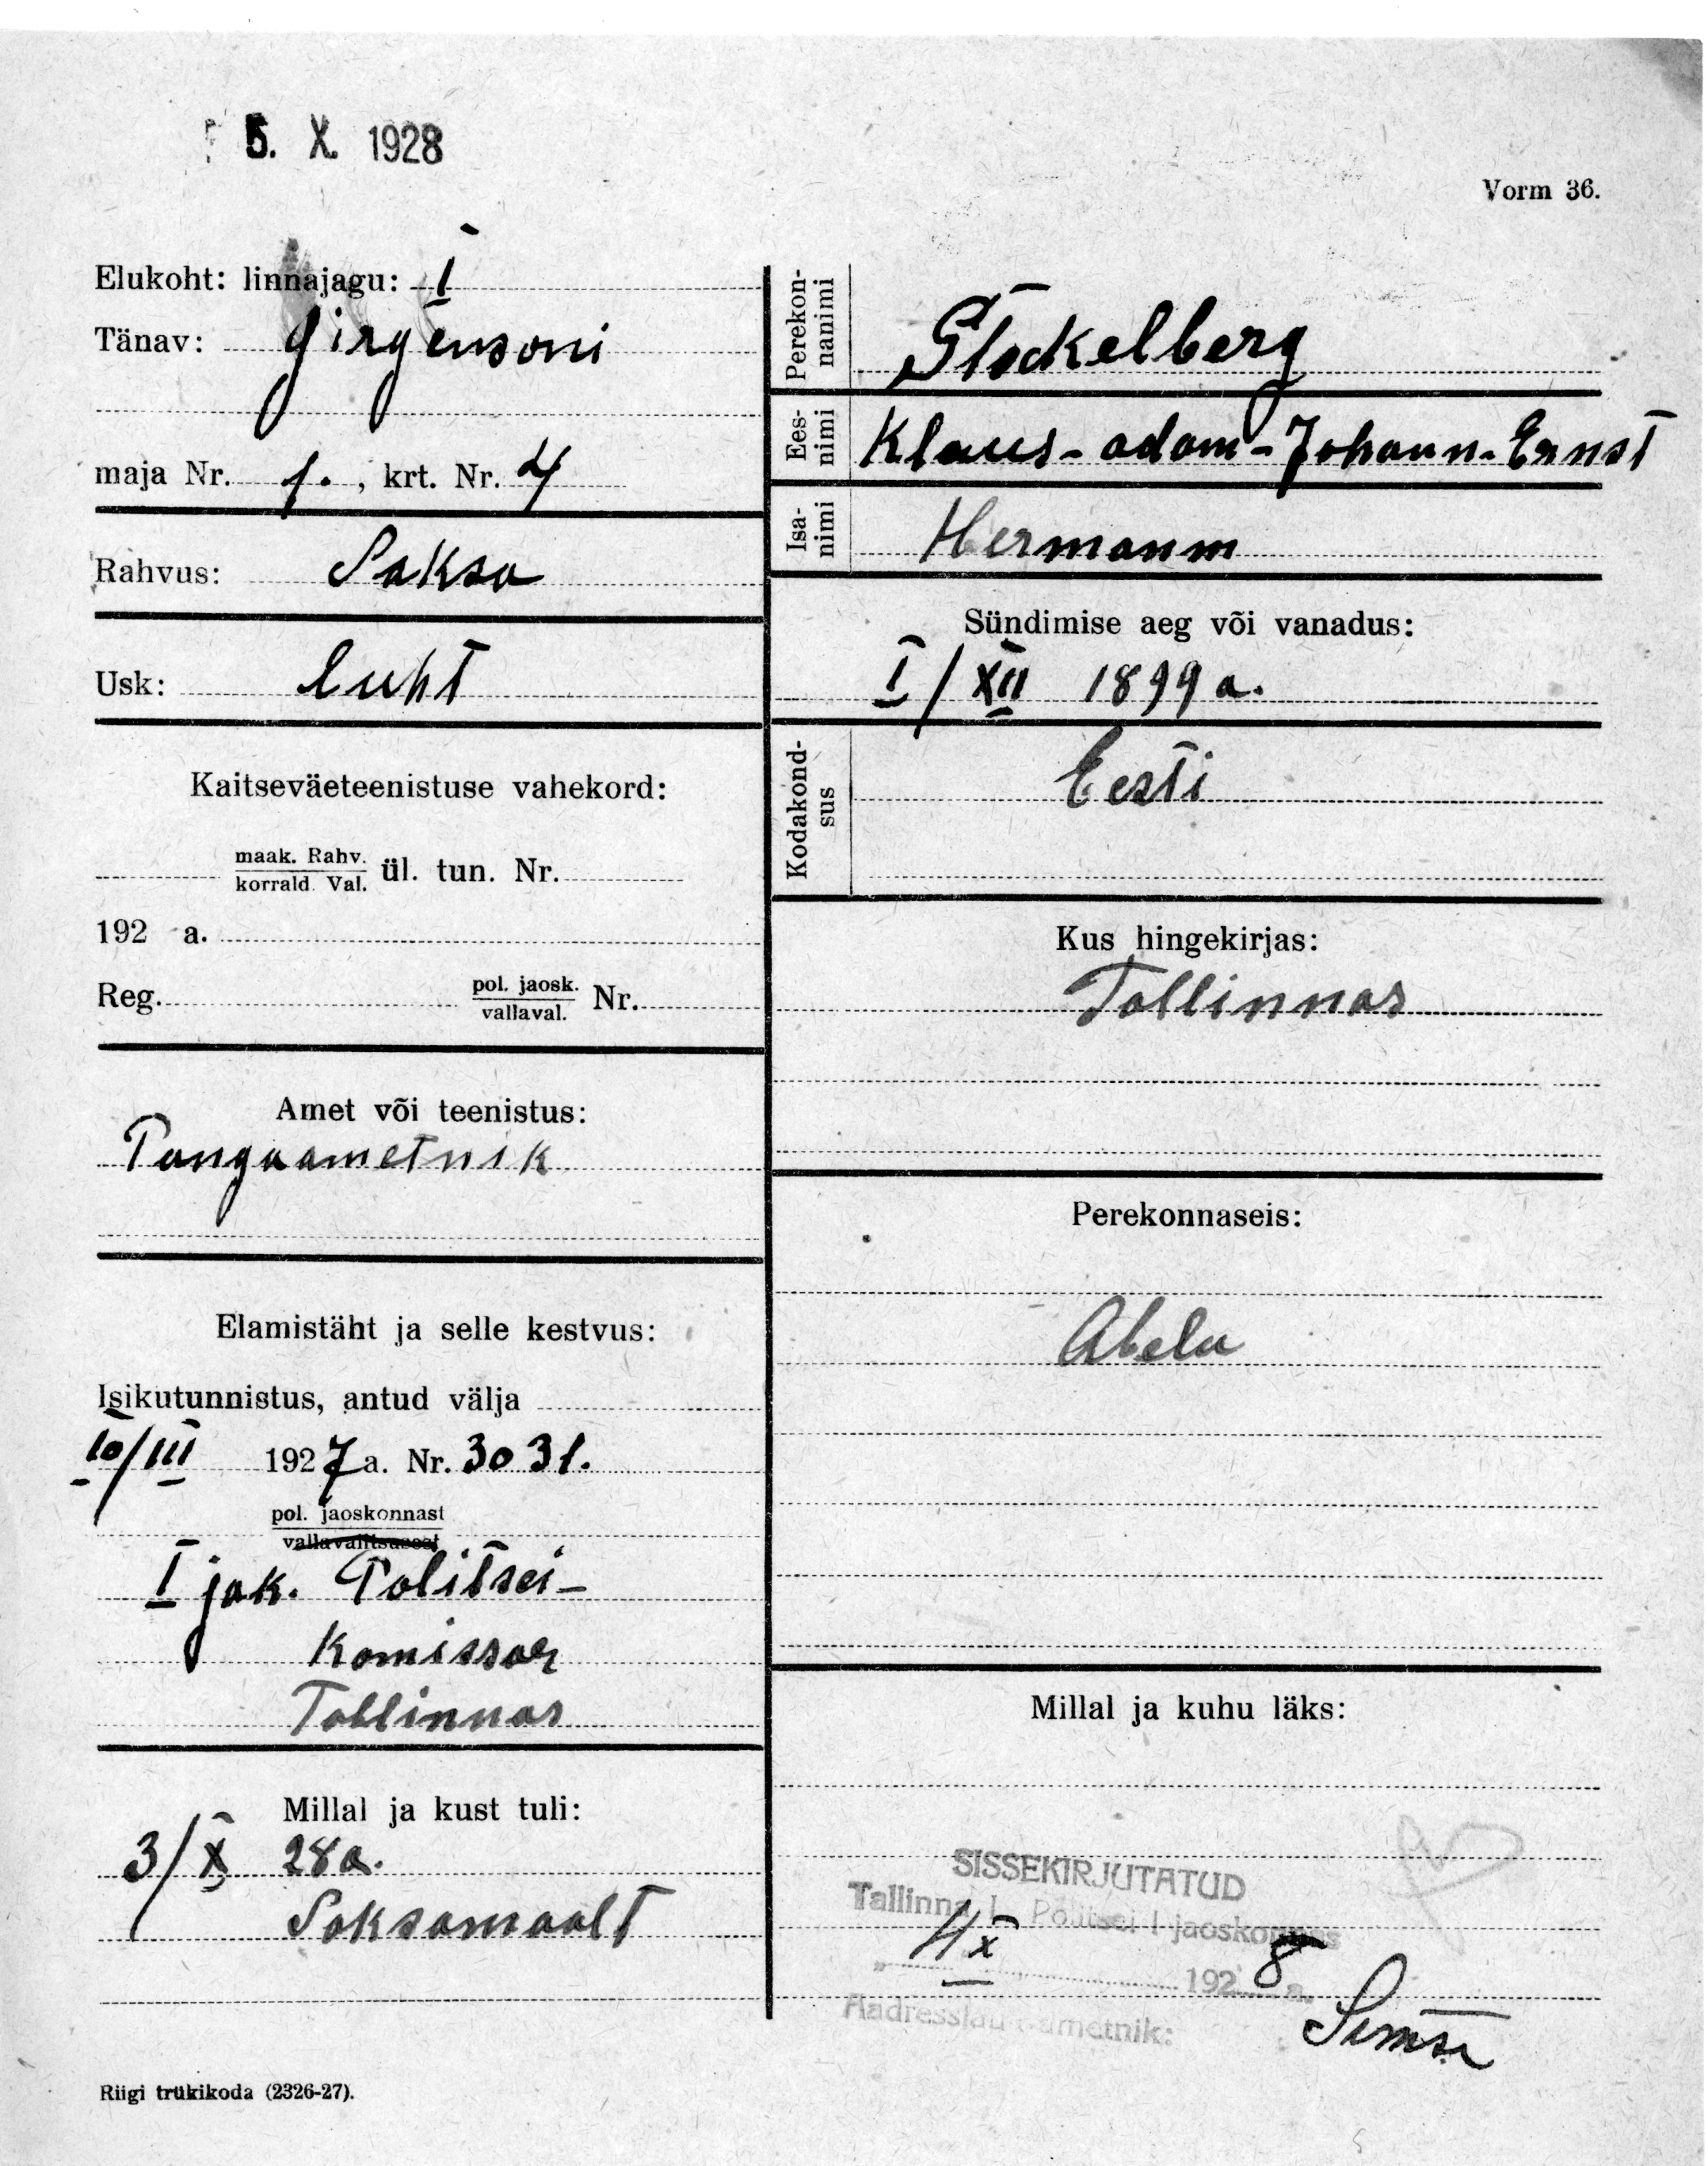 5. X. 1928
Vorm 36.
Elukoht: linnajagu: I
Tänav: Girgensoni
maja Nr. 1. , krt. Nr. 4
Rahvus: Saksa
Usk: luht
Kaitseväeteenistuse vahekord:
maak. Rahv.
korrald. Val. ül. tun. Nr.
192 a.
Reg. pol. jaosk.
vallaval. Nr.
Amet või teenistus:
Pangaametnik
Elamistäht ja selle kestvus:
Isikutunnistus, antud välja
10/III 1927 a. Nr. 3031.
pol. jaoskonnast
vallavalitsusest
I jak. Politsei-
Komissar
Tallinnas
Millal ja kust tuli:
3/X 28 a.
Saksamaalt
Riigi trükikoda (2326-27).
Perekon-
nanimi
Stackelberg
Ees-
nimi
Klaus-Adam-Johann-Ernst
Isa-
nimi
Hermann
Sündimise aeg või vanadus:
I/XII 1899 a.
Kodakond-
sus
Eesti
Kus hingekirjas:
Tallinnas
Perekonnaseis:
Abelu
Millal ja kuhu läks:
SISSEKIRJUTATUD
Tallinna L. Politsei I jaoskonnas
" 4 X 1928 a.
Aadresslaua ametnik: